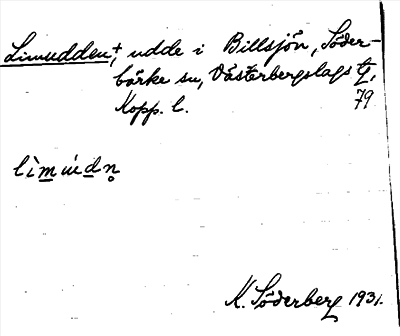 Limudden+, udde i Billsjön, Söder-
bärke sn, Västerbergslags tg,
Kopp. l. 79
lìmúdn̥
K. Söderberg 1931.